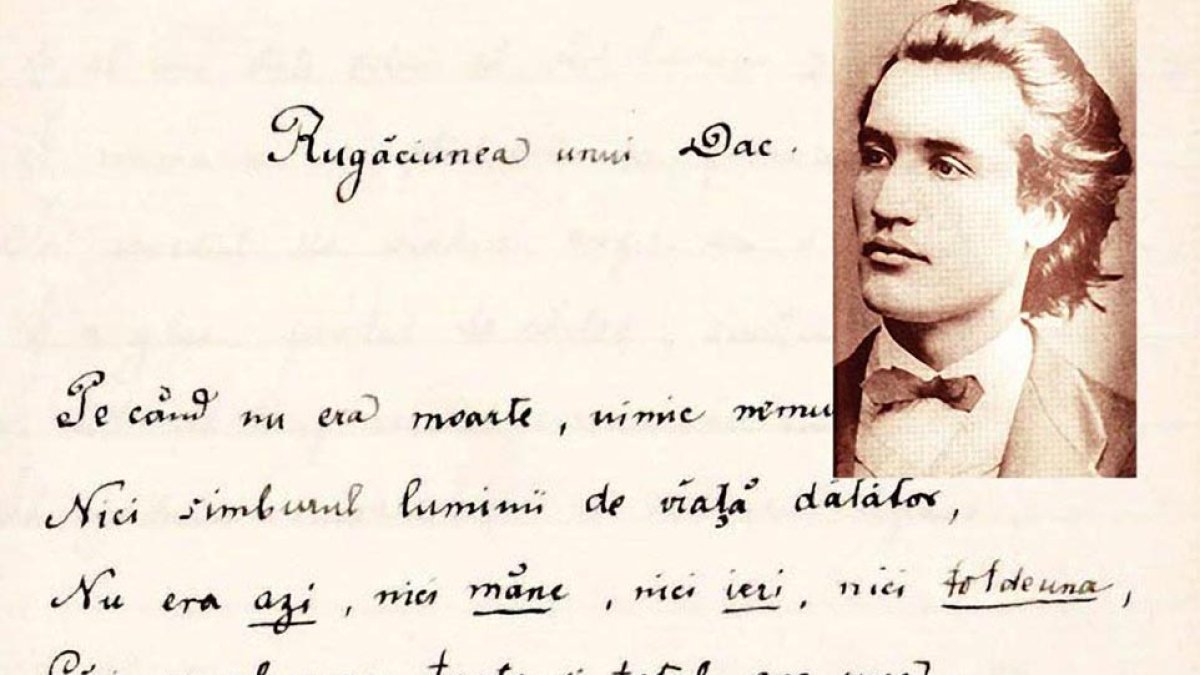 Rugăciunea unui Dac.
Pe cănd nu era moarte, nimic nemu
Nici simburul luminii de viaţă dătător,
Nu era azi, nici măne, nici ieri, nici totdeuna,
Căci toate și totul era una